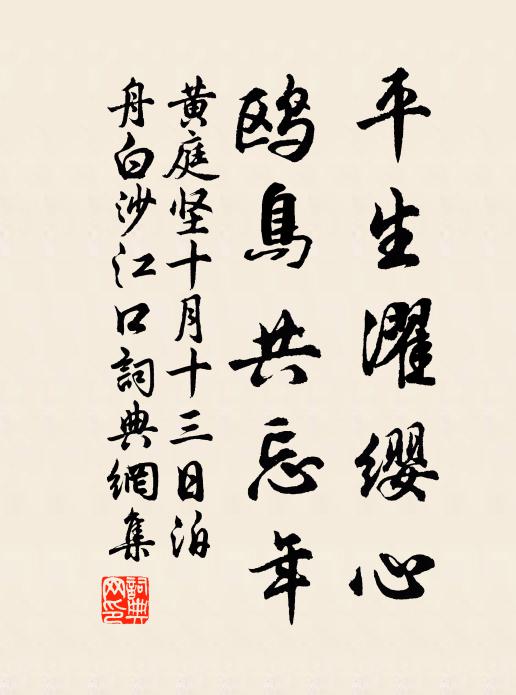 平生濯缨心
鸥鳥共忘年
黄庭坚十月十三日泊
舟白沙江口詞典網集
詞典網印